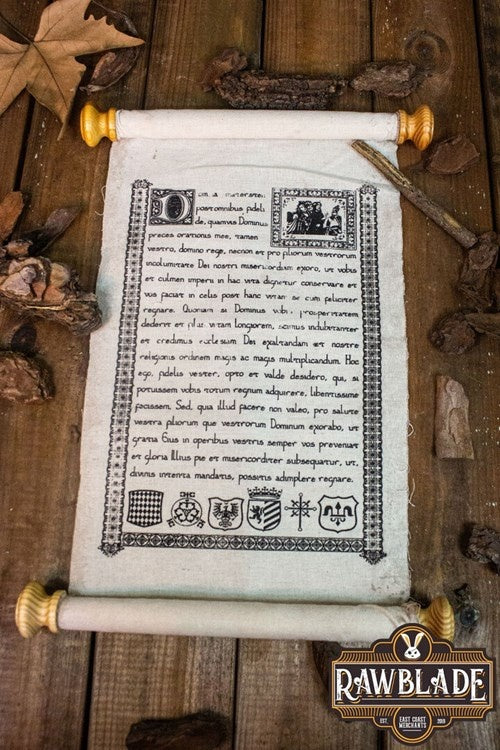 D
postromnibus fideli
de, quamvis Dominus
preces orationis mee, tamen
vestro, domino rege, necnon et pro pliorum vestrorum
incolumitate Dei nostri misericordiam exoro, ut vobis
et culmen imperii in hac vita dignetur conservare et
vos faciat in celis post hanc vitam si cum feliciter
regnare. Quoniam si Dominus vobis prosperitatem
dederit et illius vitam longiorem, scimus indubitanter
et credimus ecclesiam Dei exaltandam et nostre
religionis ordinem magis ac magis multiplicandum. Hoc
ego, fidelis vester, opto et valde desidero, qui, si
potuissem vobis totum regnum adquirere, libentissime
fecissem. Sed, quia illud facere non valeo, pro salute
vestra filiorum que vestrorum Dominum exorabo, ut
gratia Eius in operibus vestris semper vos preveniat
et gloria Illius pie et misericorditer subsequatur, ut,
divinis intenta mandatis, possitis adimplere regnare.
RAWBLADE
EST. EAST COAST 2019
MERCHANTS